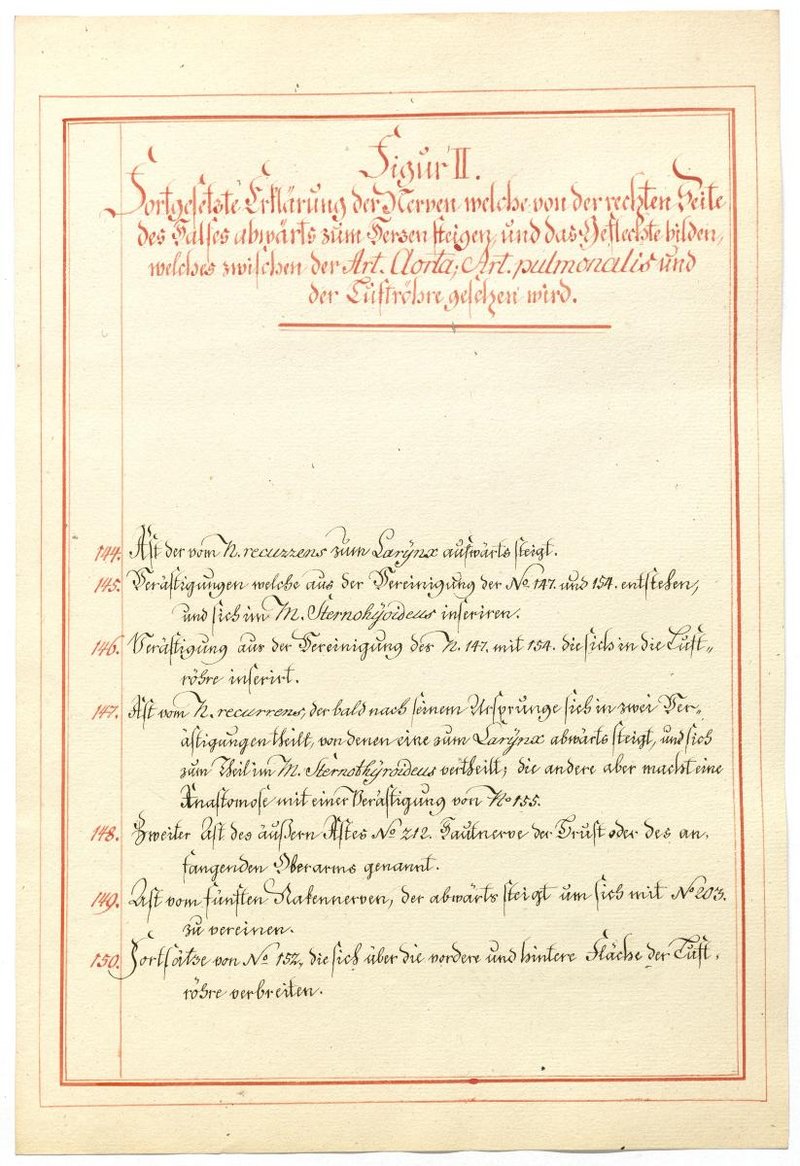 Figur II.
Fortgesetzte Erklärung der Nerven welche von der rechten Seite
des Halses abwärts zum Herzen steigen, und das Geflechte bilden,
welches zwischen der Art. Aorta; Art. pulmonalis und
der Luftröhre gesehen wird.
144. Ast der vom N. recurrens zum Larÿnx aufwärts steigt.
145. Verästigungen welche aus der Vereinigung der No. 147. und 154. entstehen,
und sich im M. Sternohÿoideus inseriren.
146. Verästigung aus der Vereinigung des N. 147. mit 154. die sich in die Luft-
röhre inserirt.
147. Ast vom N. recurrens, der bald nach seinem Ursprunge sich in zwei Ver-
ästigungen theilt, von denen eine zum Larÿnx abwärts steigt, und sich
zum Theil im M. Sternothÿroideus vertheilt; die andere aber macht eine
Anastomose mit einer Verästigung von No 155.
148. Zweiter Ast des äußern Astes No 212. Hautnerve der Brust oder des an-
fangenden Oberarms genannt.
149. Ast vom fünften Nakennerven, der abwärts steigt um sich mit No 203.
zu vereinen.
150. Fortsätze von No 152, die sich über die vordere und hintere Fläche der Luft-
röhre verbreiten.